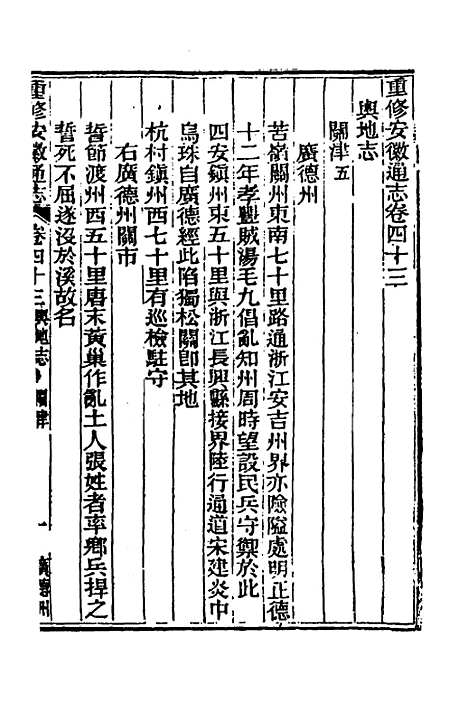 重修安徽通志卷四十三
輿地志
關津五
廣德州
苦嶺關州東南七十里路通浙江安吉州界亦險隘處明正德
十二年孝豐賊湯毛九倡亂知州周時望設民兵守禦於此
四安鎮州東五十里與浙江長興縣接界陸行通道宋建炎中
烏珠自廣德經此陷獨松關卽其地
杭村鎮州西七十里有巡檢駐守
右廣德州關市
誓節渡州西五十里唐末黃巢作亂土人張姓者率鄉兵捍之
誓死不屈遂沒於溪故名
重修安徽通志 卷四十三輿地志 關津 一 廣德州